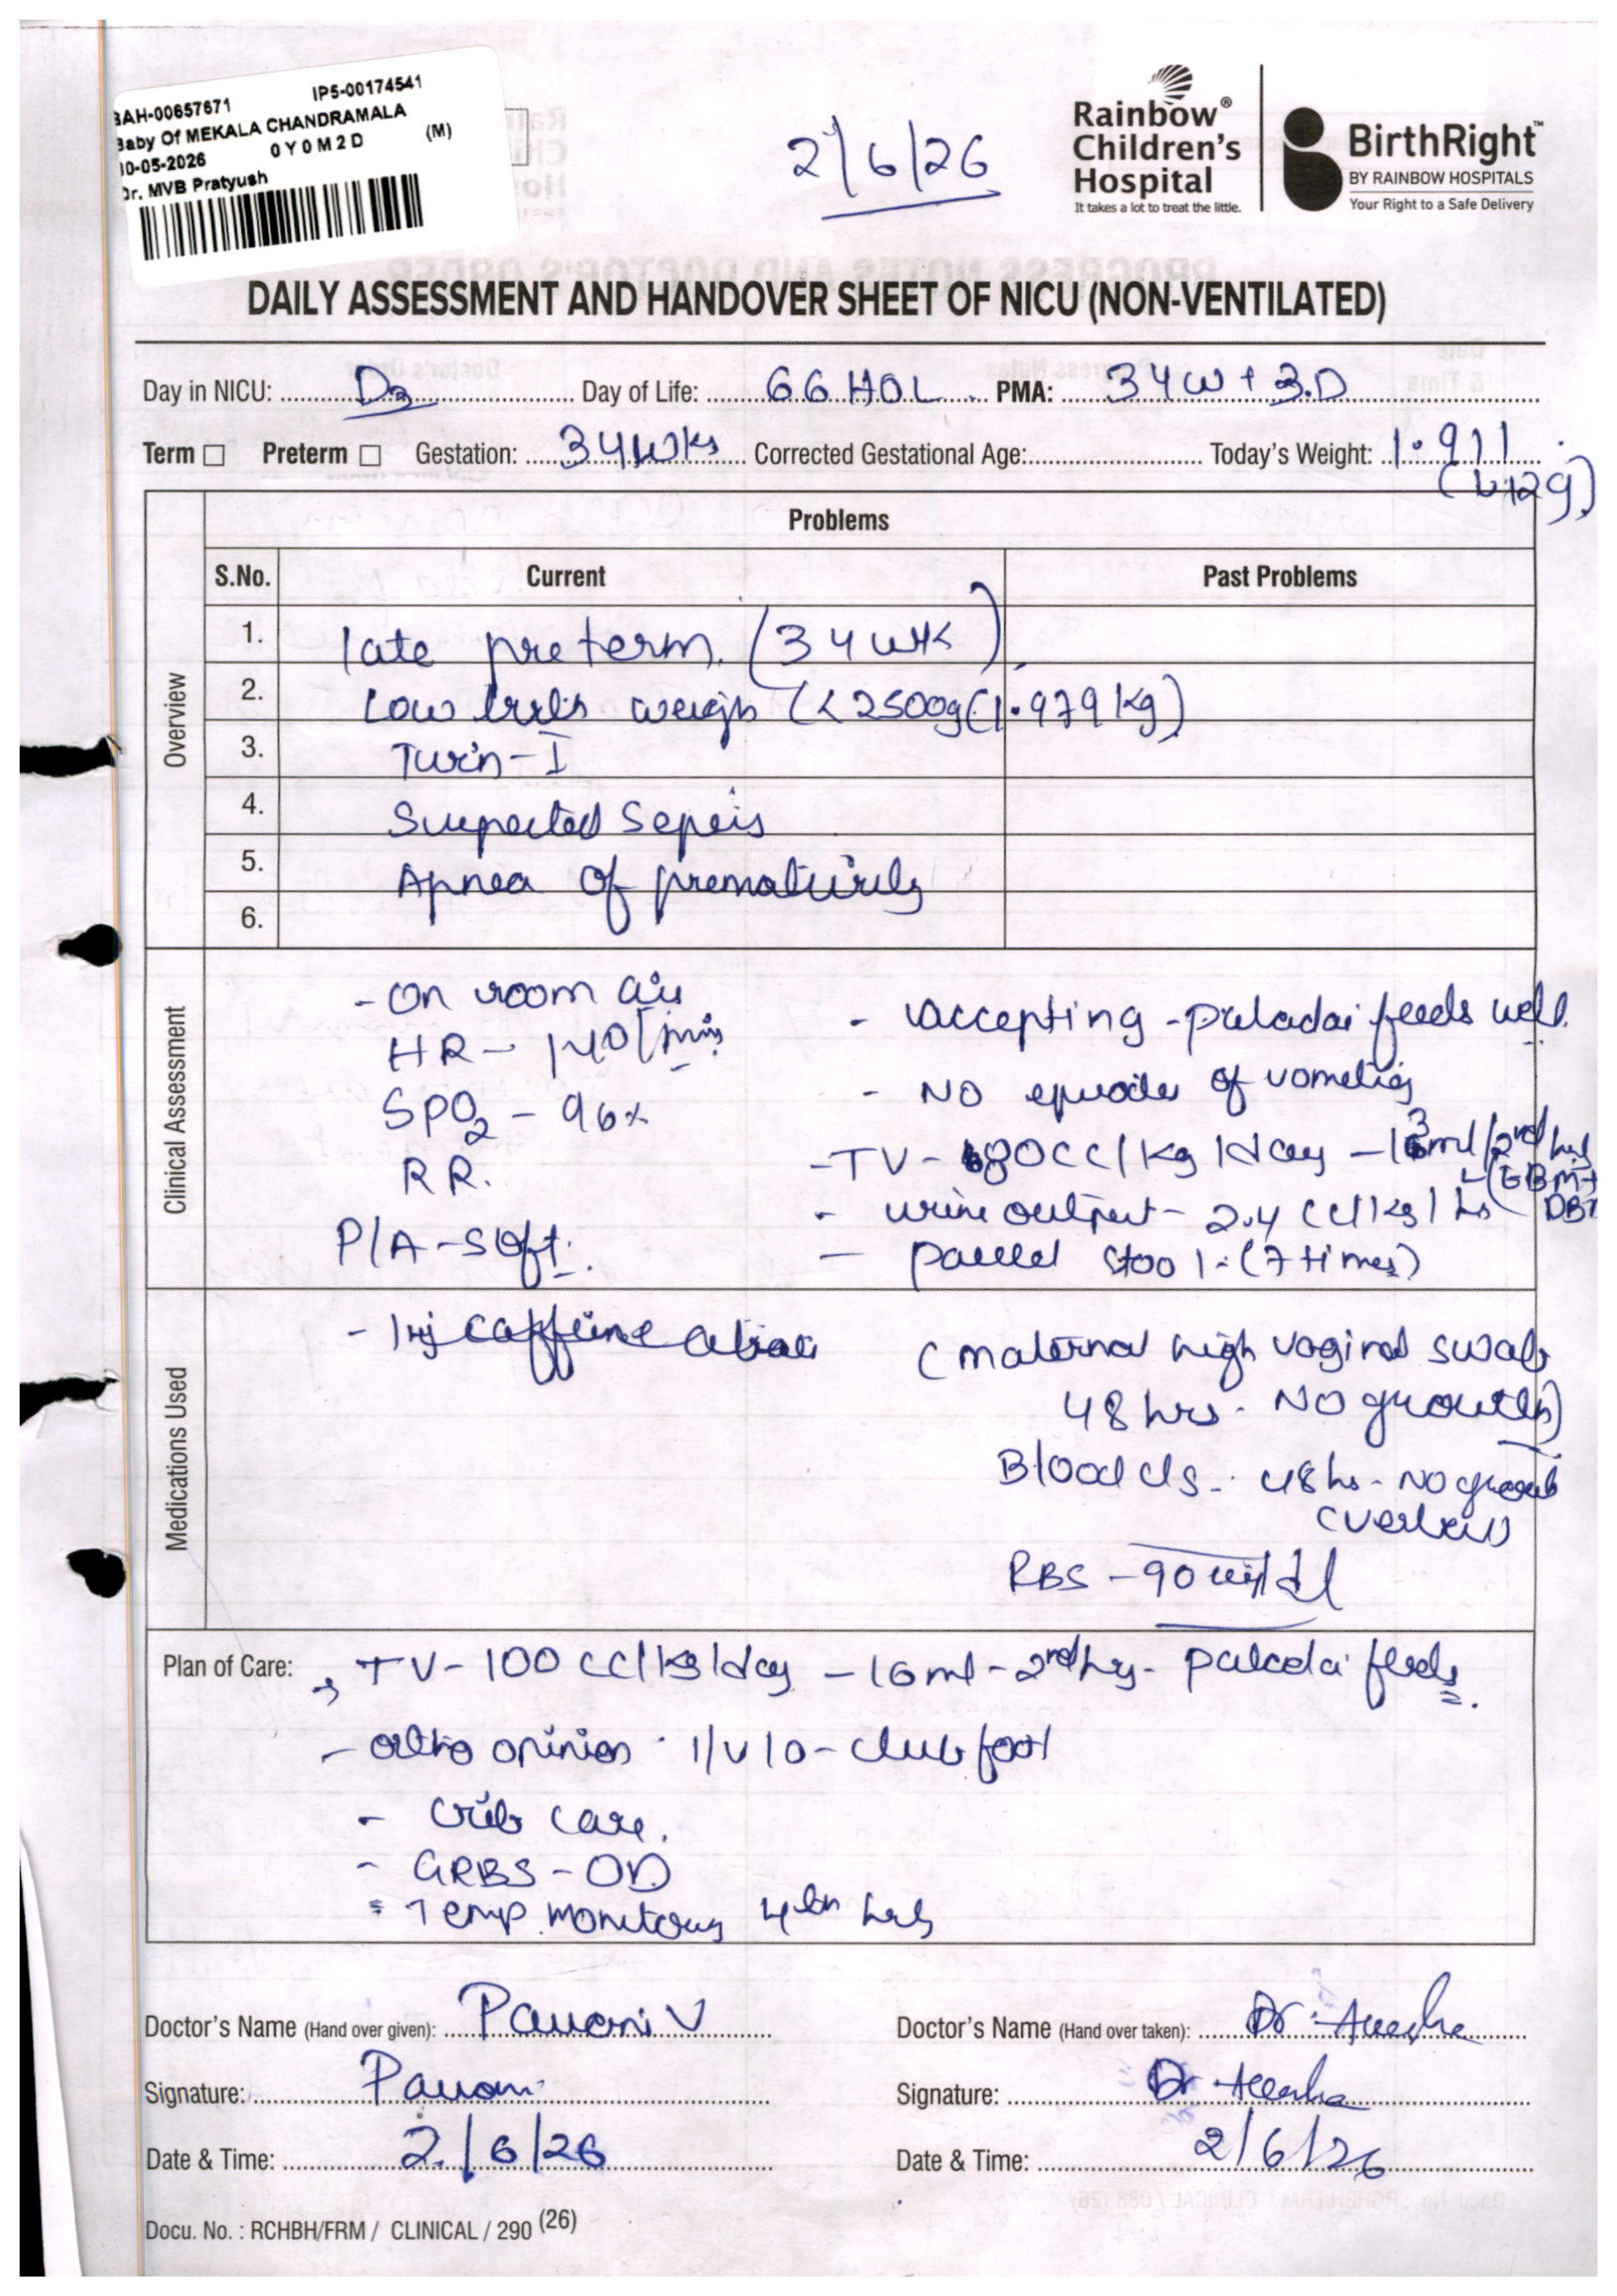 BAH-00657671 IP5-00174541
Baby Of MEKALA CHANDRAMALA
0-05-2026 0Y0M2D (M)
Dr. MVB Pratyush
2/6/26
Rainbow®
Children's
Hospital
It takes a lot to treat the little.
BirthRight™
BY RAINBOW HOSPITALS
Your Right to a Safe Delivery
DAILY ASSESSMENT AND HANDOVER SHEET OF NICU (NON-VENTILATED)
Day in NICU: D3 Day of Life: 66 HOL PMA: 34W + 3.D
Term □ Preterm □ Gestation: 34wks Corrected Gestational Age: Today's Weight: 1.911
(↓12g)
Overview
Problems
S.No. Current Past Problems
1. late preterm. (34 wk)
2. Low birth weigh (<2500g(1.979kg)
3. Twin-I
4. Suspected Sepsis
5. Apnea of prematurity
6.
Clinical Assessment
- On room air
HR - 140/min
SPO2 - 96%
RR.
P/A - soft.
- accepting - paladai feeds well.
- NO episodes of vomiting
- TV - 80cc/kg/day - 13ml/2nd hrly
(EBM+
- urine output - 2.4 cc/kg/hr
- passed stool - (7 times)
Medications Used
- Inj caffeine citrate
(maternal high vaginal swab
48 hrs - NO growth)
Blood c/s - 48 hrs - NO growth
(verbal)
RBS - 90 mg/dl
Plan of Care: → TV - 100 cc/kg/day - 16ml - 2nd hrly - paladai feeds
- ortho opinion i/v/o - club foot
- crib care.
- GRBS - OD
- Temp. monitoring 4th hrly
Doctor's Name (Hand over given): Pavani V
Doctor's Name (Hand over taken): Dr.
Signature: Pavani
Signature: Dr
Date & Time: 2/6/26
Date & Time: 2/6/26
Docu. No. : RCHBH/FRM / CLINICAL / 290 (26)